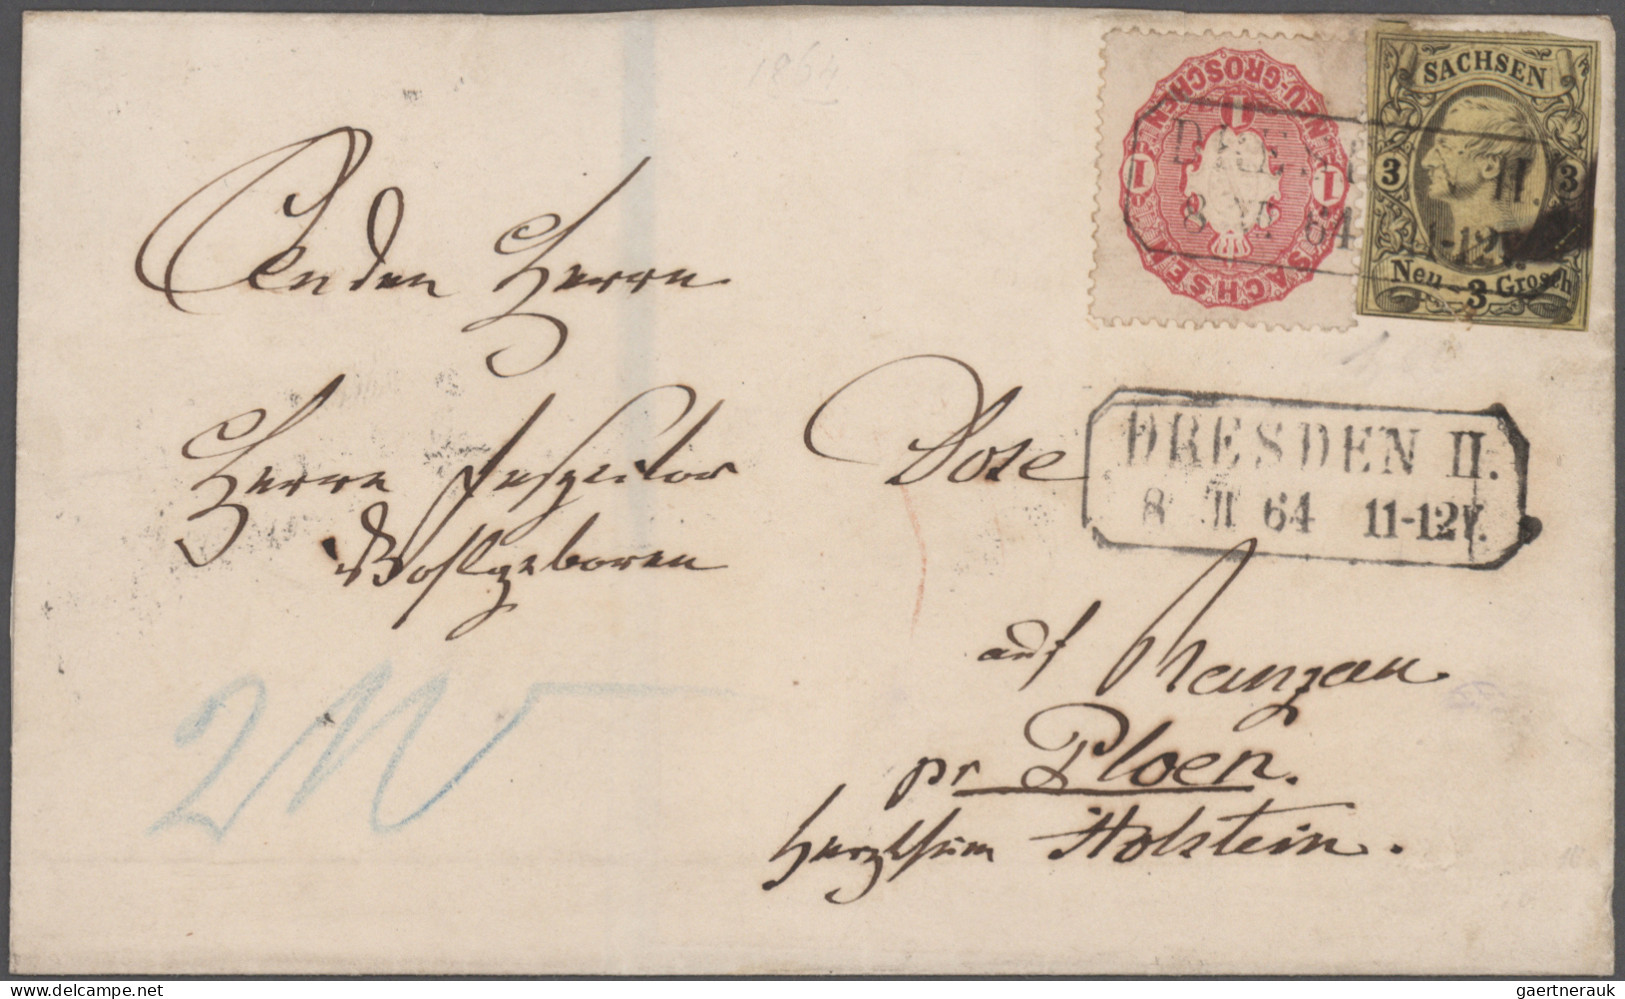 1864
SACHSEN
3 3
Neu - 3 Grosch
NEU-GROSCHEN
1
1 1
SACHSEN
DRESD II.
8 II 64 11-12V.
An den Herrn
Herrn Inspector Dose
Wohlgeboren
DRESDEN II.
8 II 64 11-12V.
auf Ranzau
pr Ploen.
Herzogthum Holstein.
2
gaertnerauk